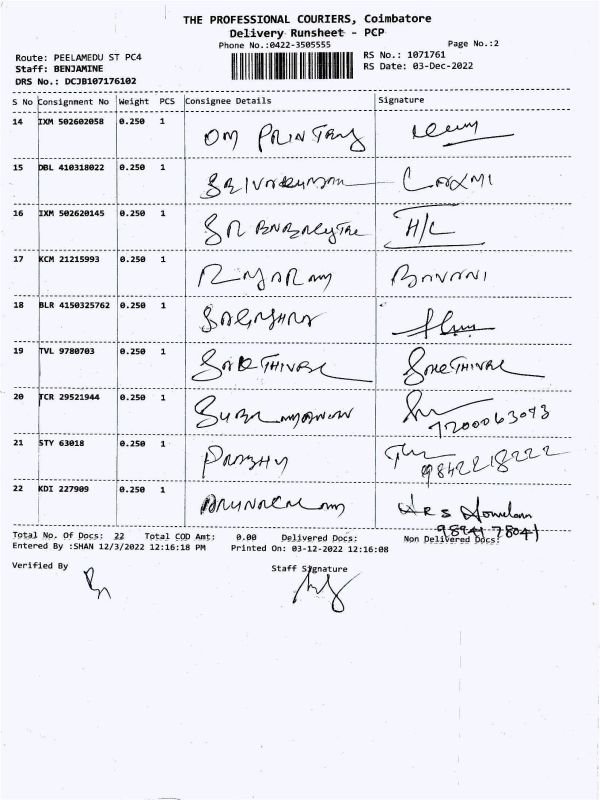 THE PROFESSIONAL COURIERS, Coimbatore
Delivery Runsheet - PCP
Phone No.:0422-3505555
Page No.:2
Route: PEELAMEDU ST PC4
RS No.: 1071761
Staff: BENJAMINE
RS Date: 03-Dec-2022
DRS No.: DCJB107176102
S No Consignment No Weight PCS Consignee Details Signature
14 IXM 502602058 0.250 1 OM
15 DBL 410318022 0.250 1 LAXMI
16 IXM 502620145 0.250 1 H/L
17 KCM 21215993 0.250 1 BAVANI
18 BLR 4150325762 0.250 1
19 TVL 9780703 0.250 1 SAKTHIVEL SAKTHIVEL
20 TCR 29521944 0.250 1
7200063073
21 STY 63018 0.250 1 PRABHU
9842218222
22 KDI 227909 0.250 1
98941 78041
Total No. Of Docs: 22 Total COD Amt: 0.00 Delivered Docs: Non Delivered Docs:
Entered By :SHAN 12/3/2022 12:16:18 PM Printed On: 03-12-2022 12:16:08
Verified By Staff Signature